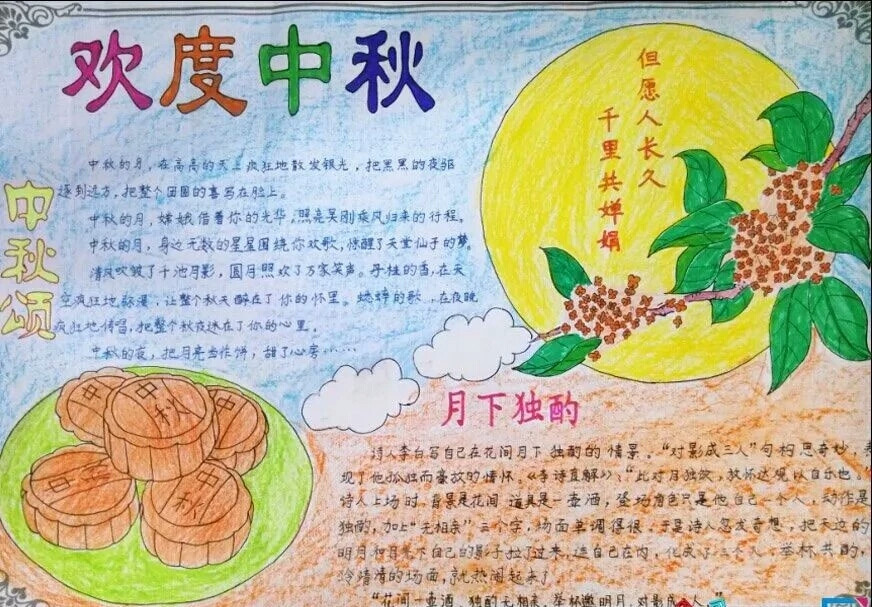 欢度中秋
但愿人长久
千里共婵娟
中秋颂
中秋的月，在高高的天上疯狂地散发银光，把黑黑的夜驱
逐到远方，把整个团圆的喜写在脸上。
中秋的月，嫦娥借着你的光华，照亮吴刚乘风归来的行程。
中秋的月，身边无数的星星围绕你欢歌，惊醒了天堂仙子的梦。
清风吹皱了千池月影，圆月照欢了万家笑声。丹桂的香，在天
空疯狂地弥漫，让整个秋天醉在了你的怀里。蟋蟀的歌，在夜晚
疯狂地传唱，把整个秋夜迷在了你的心里。
中秋的夜，把月亮当作饼，甜了心房……
中秋
中秋
中秋
月下独酌
诗人李白写自己在花间月下独酌的情景。“对影成三人”句构思奇妙，表
现了他孤独而豪放的情怀。《李诗直解》：“此对月独饮，放怀达观以自乐也。
诗人上场时，背景是花间，道具是一壶酒，登场角色只是他自己一个人，动作是
独酌，加上“无相亲”三个字，场面单调得很。于是诗人忽发奇想，把天边的
明月和月亮下自己的影子拉了过来，连自己在内，化成了三个人，举杯共酌，
冷清清的场面，就热闹起来了
“花间一壶酒，独酌无相亲。举杯邀明月，对影成 人。”